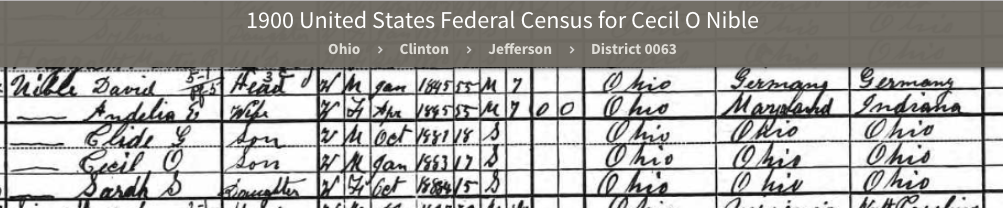 1900 United States Federal Census for Cecil O Nible
Ohio > Clinton > Jefferson > District 0063
Nible David Head W M Jan 1845 55 M 7 Ohio Germany Germany
Andelia E Wife W F Apr 1845 55 M 7 0 0 Ohio Maryland Indiana
Clide G Son W M Oct 1881 18 S Ohio Ohio Ohio
Cecil O Son W M Jan 1883 17 S Ohio Ohio Ohio
Sarah S Daughter W F Oct 1884 15 S Ohio Ohio Ohio